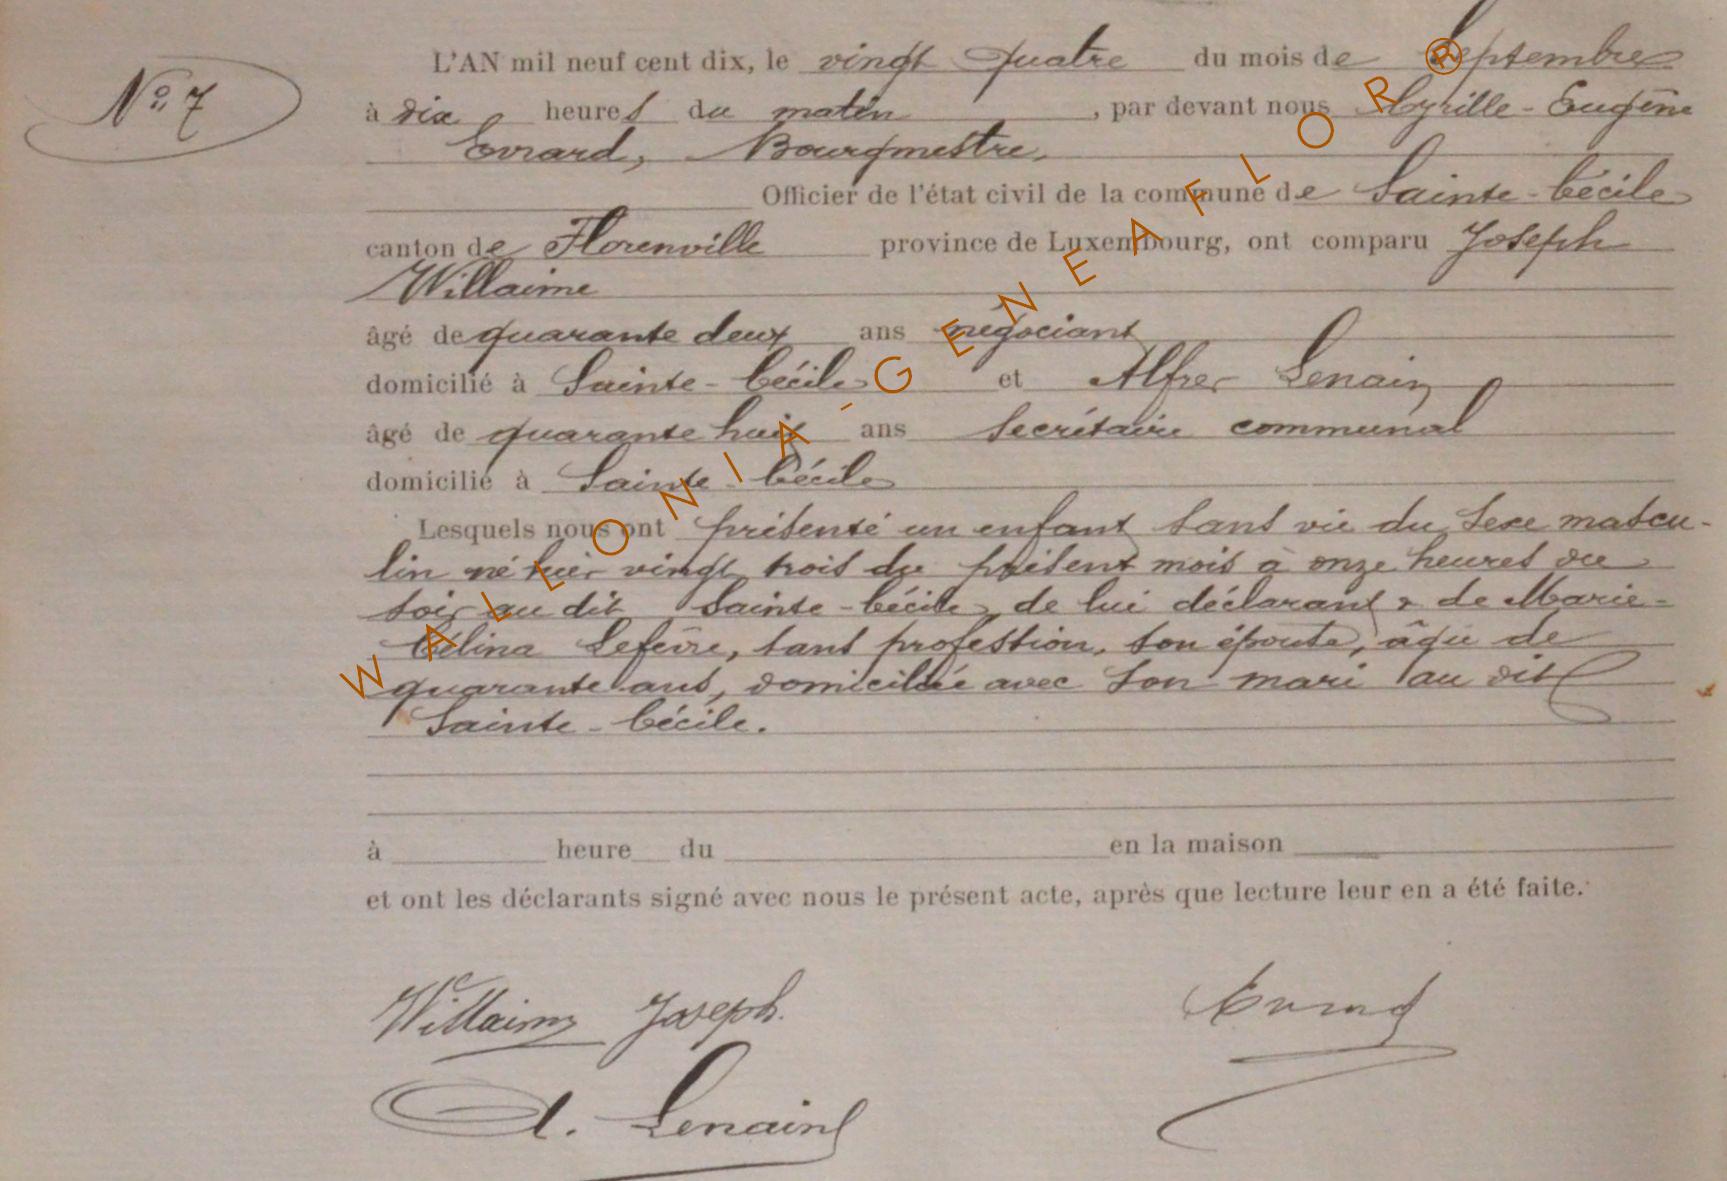 L'AN mil neuf cent dix, le vingt quatre du mois de Septembre
N° 7
à dix heures du matin, par devant nous Cyrille-Eugène
Evrard, Bourgmestre,
Officier de l'état civil de la commune de Sainte-Cécile
canton de Florenville province de Luxembourg, ont comparu Joseph
Willaime
âgé de quarante deux ans négociant
domicilié à Sainte-Cécile et Alfred Lenain
âgé de quarante huit ans secrétaire communal
domicilié à Sainte-Cécile
Lesquels nous ont présenté un enfant sans vie du sexe mascu-
lin né hier vingt trois du présent mois à onze heures du
soir au dit Sainte-Cécile, de lui déclarant & de Marie-
Célina Lefèvre, sans profession, son épouse, âgée de
quarante ans, domiciliée avec son mari au dit
Sainte-Cécile.
à heure du en la maison
et ont les déclarants signé avec nous le présent acte, après que lecture leur en a été faite.
Willaime Joseph. Evrard
A. Lenain
WALLONIA-GENEAFLOR®